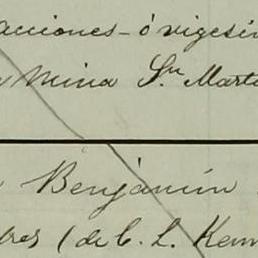 acciones - ó vigesi
Mina Sn Mart
Benjamín
(de C. L. Ken